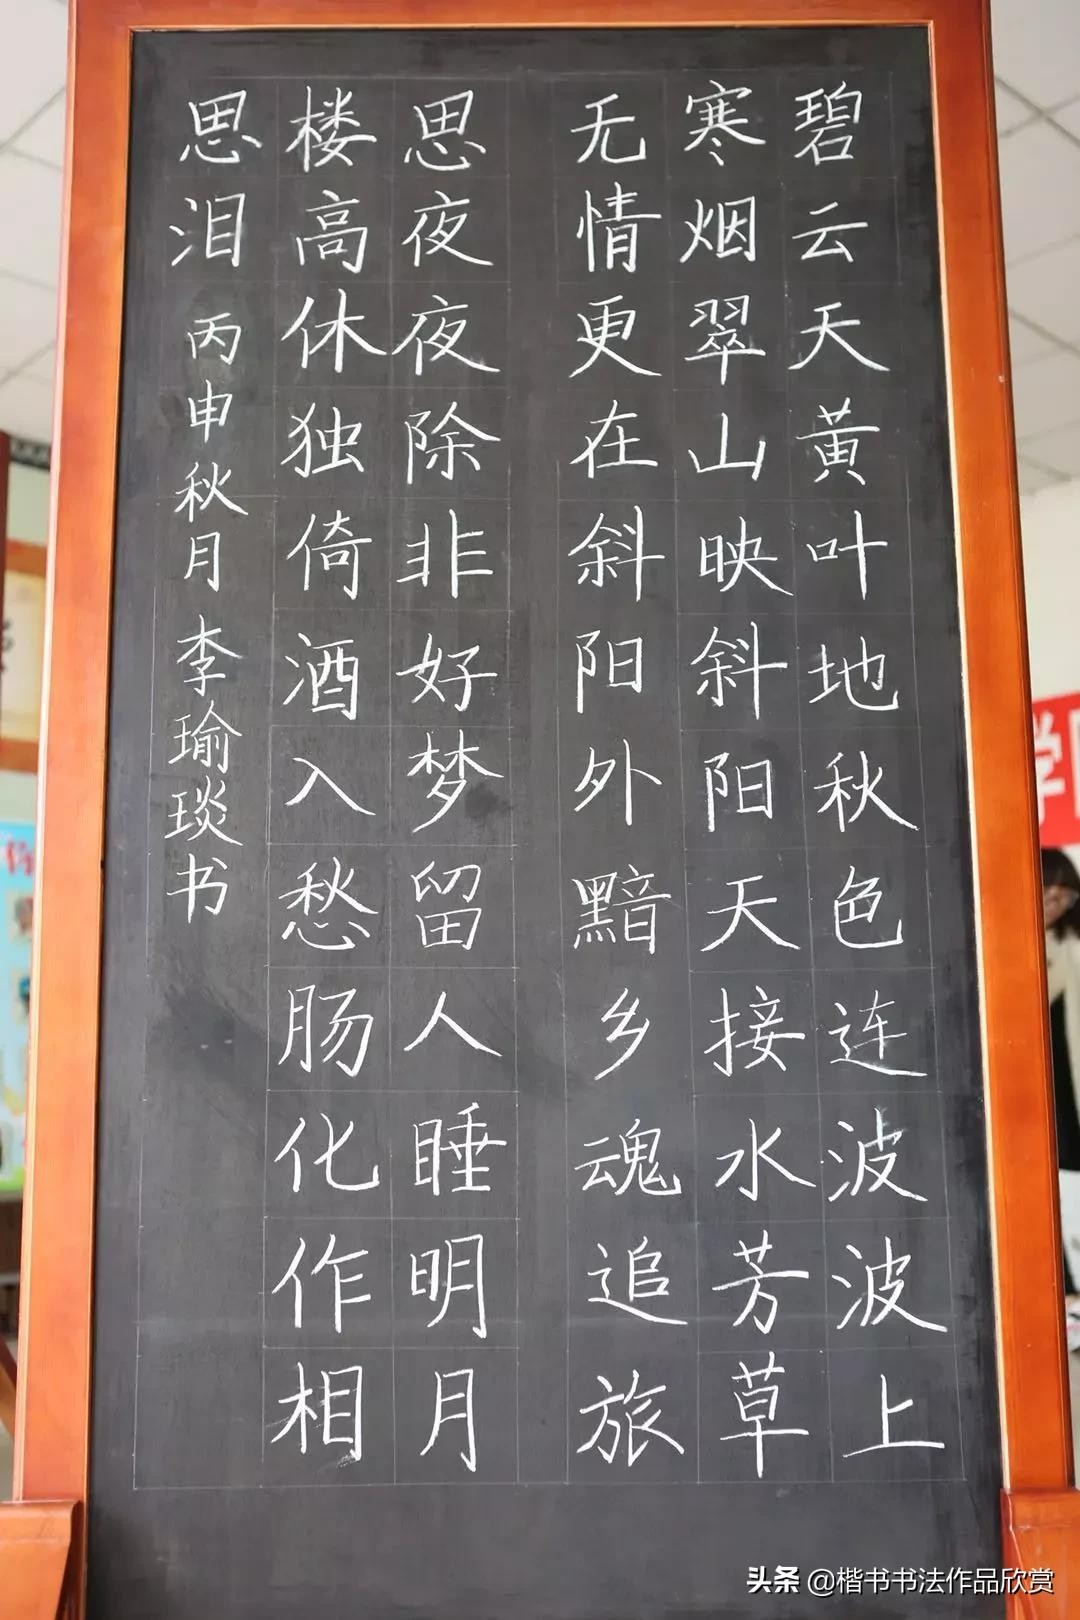 碧云天黄叶地秋色连波波上
寒烟翠山映斜阳天接水芳草
无情更在斜阳外黯乡魂追旅
思夜夜除非好梦留人睡明月
楼高休独倚酒入愁肠化作相
思泪 丙申秋月李瑜琰书
头条 @楷书书法作品欣赏